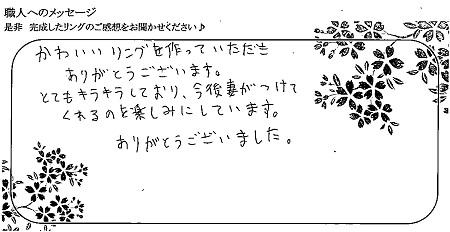 職人へのメッセージ
是非 完成したリングのご感想をお聞かせください♪
かわいいリングを作っていただき
ありがとうございます。
とてもキラキラしており、今後妻がつけて
くれるのを楽しみにしています。
ありがとうございました。